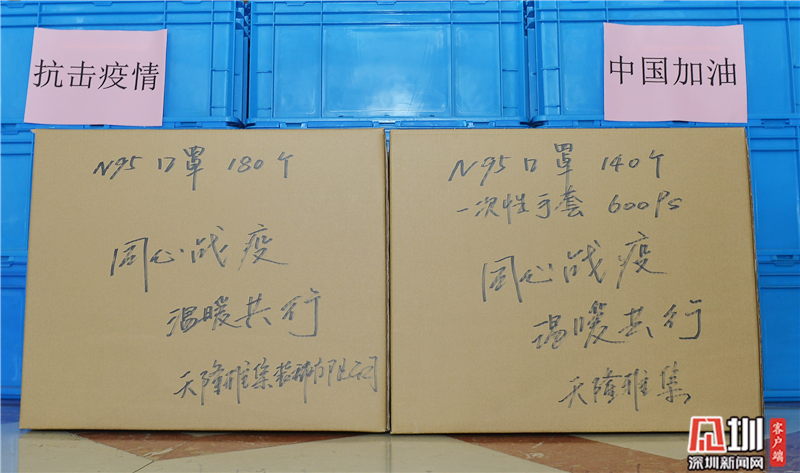 抗击疫情
中国加油
N95口罩 180个
同心战疫
温暖共行
天隆雅集装饰有限公司
N95口罩 140个
一次性手套 600Ps
同心战疫
温暖共行
天隆雅集
圳
深圳新闻网
客户端